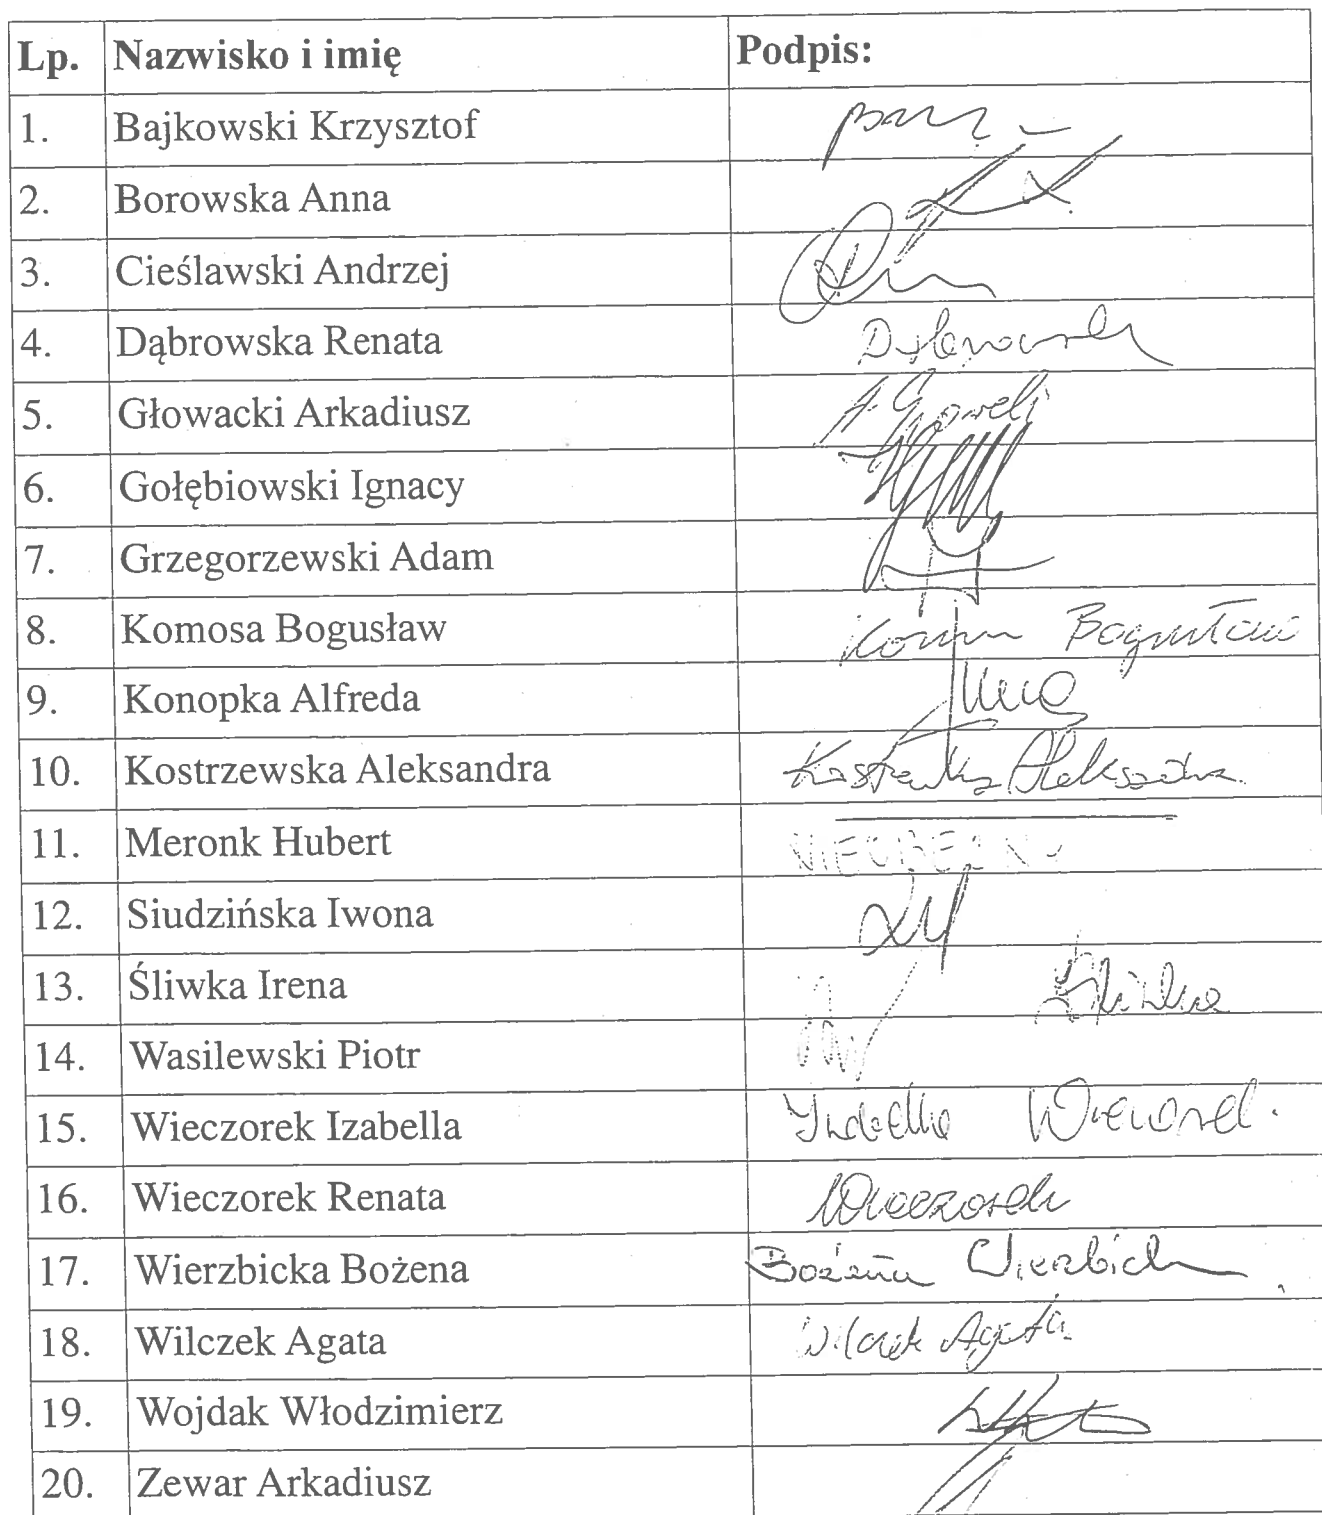 Lp. Nazwisko i imię Podpis:
1. Bajkowski Krzysztof
2. Borowska Anna
3. Cieślawski Andrzej
4. Dąbrowska Renata
5. Głowacki Arkadiusz
6. Gołębiowski Ignacy
7. Grzegorzewski Adam
8. Komosa Bogusław Bogusław
9. Konopka Alfreda
10. Kostrzewska Aleksandra Aleksandra
11. Meronk Hubert NIEOBECNY
12. Siudzińska Iwona
13. Śliwka Irena Śliwka
14. Wasilewski Piotr
15. Wieczorek Izabella Izabella Wieczorek
16. Wieczorek Renata Wieczorek
17. Wierzbicka Bożena Bożena Wierzbicka
18. Wilczek Agata Wilczek Agata
19. Wojdak Włodzimierz
20. Zewar Arkadiusz